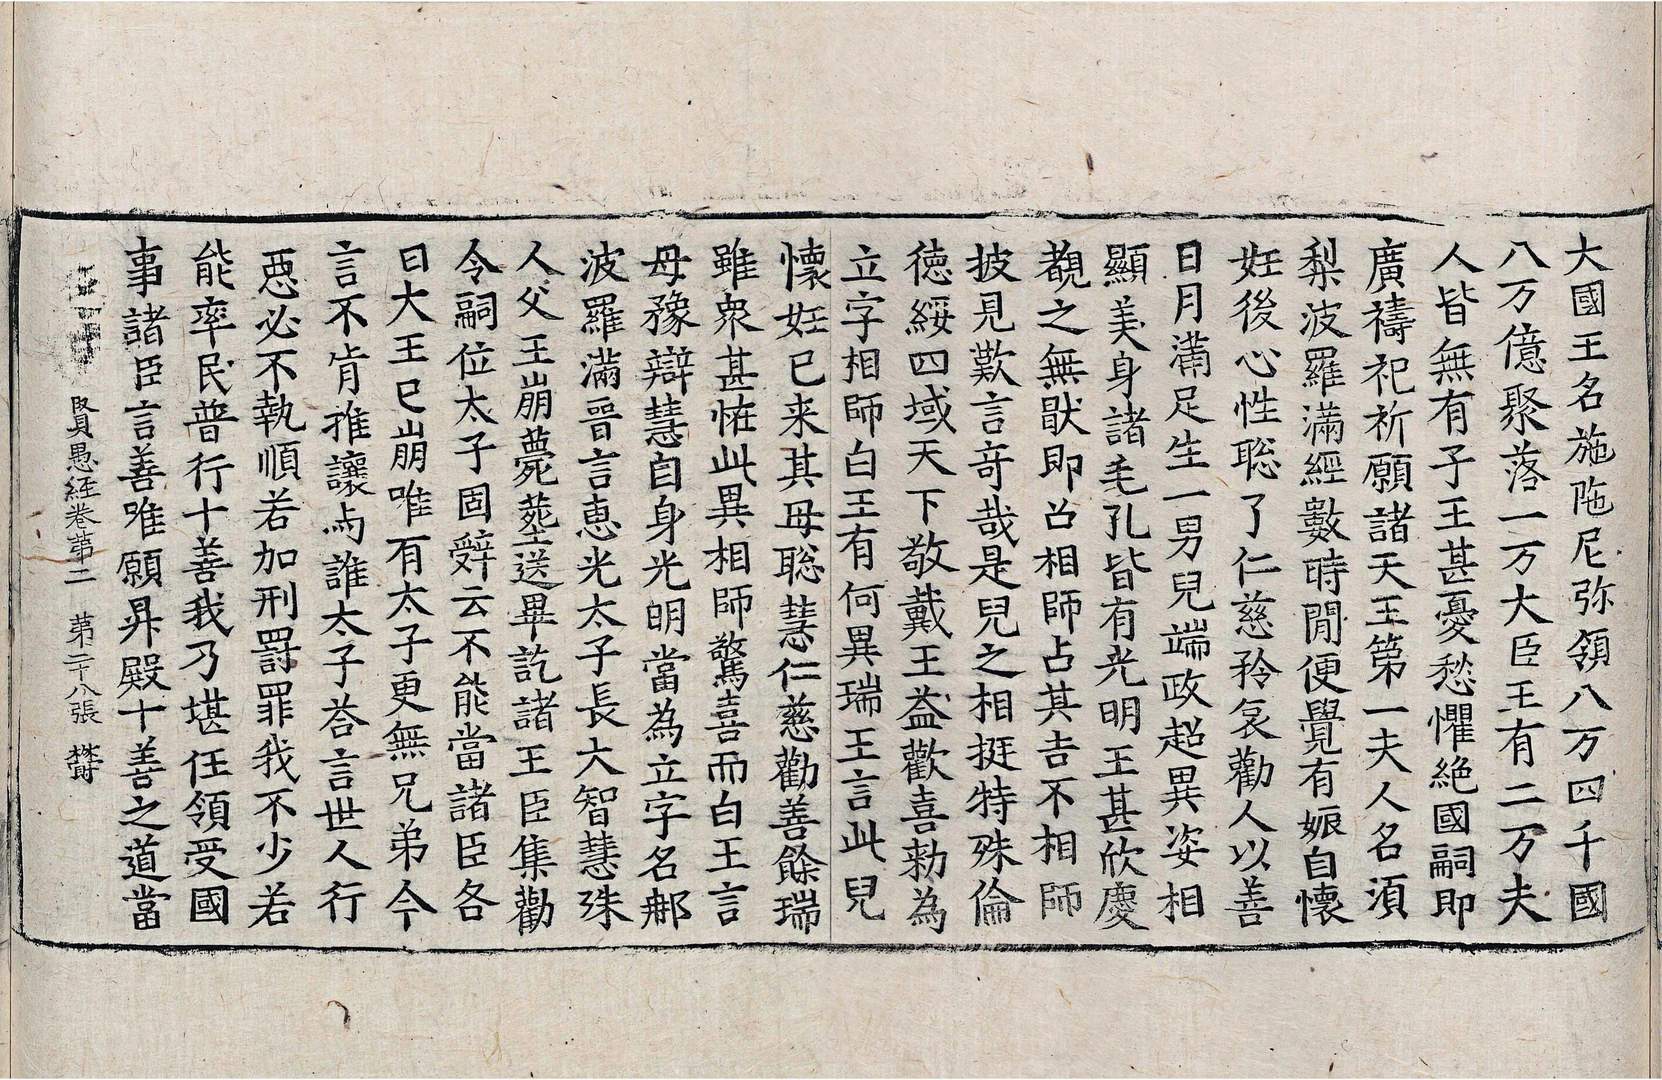 大國王名施陁尼弥領八万四千國
八万億聚落一万大臣王有二万夫
人皆無有子王甚憂愁懼絶國嗣即
廣禱祀祈願諸天王第一夫人名須
梨波羅滿經數時閒便覺有娠自懷
妊後心性聡了仁慈矜哀勸人以善
日月滿足生一男兒端政超異姿相
顯美身諸毛孔皆有光明王甚欣慶
覩之無猒即召相師占其吉不相師
披見歎言竒哉是兒之相挺特殊倫
德綏四域天下敬戴王益歡喜勑為
立字相師白王有何異瑞王言此兒
懷妊已来其母聡慧仁慈勸善餘瑞
雖衆甚恠此異相師驚喜而白王言
母豫辯慧自身光明當為立字名郍
波羅滿晉言恵光太子長大智慧殊
人父王崩薨葬送畢訖諸王臣集勸
令嗣位太子固辝云不能當諸臣各
曰大王已崩唯有太子更無兄弟今
言不肯推讓与誰太子荅言世人行
惡必不執順若加刑罰罪我不少若
能率民普行十善我乃堪任領受國
事諸臣言善唯願昇殿十善之道當
賢愚経卷第二 第二十八張